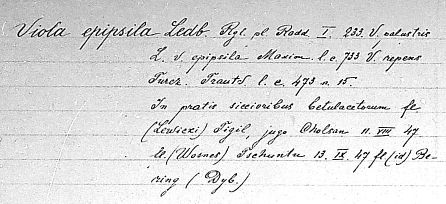 Viola epipsila Ledb. Rgl. pl. Radd. I. 233. V. palustris
L. v. epipsila Maxim. l. c. 733 V. repens
Turcz. Trautv. l. c. 473 n. 15.
In pratis siccioribus betulacetorum fl
(Lewicki) Tigil, jugo Cholsan 11. VIII 47
(Wosnes) Tschuntu 13. IX 47 fl (id) Be-
ring (Dyb.)